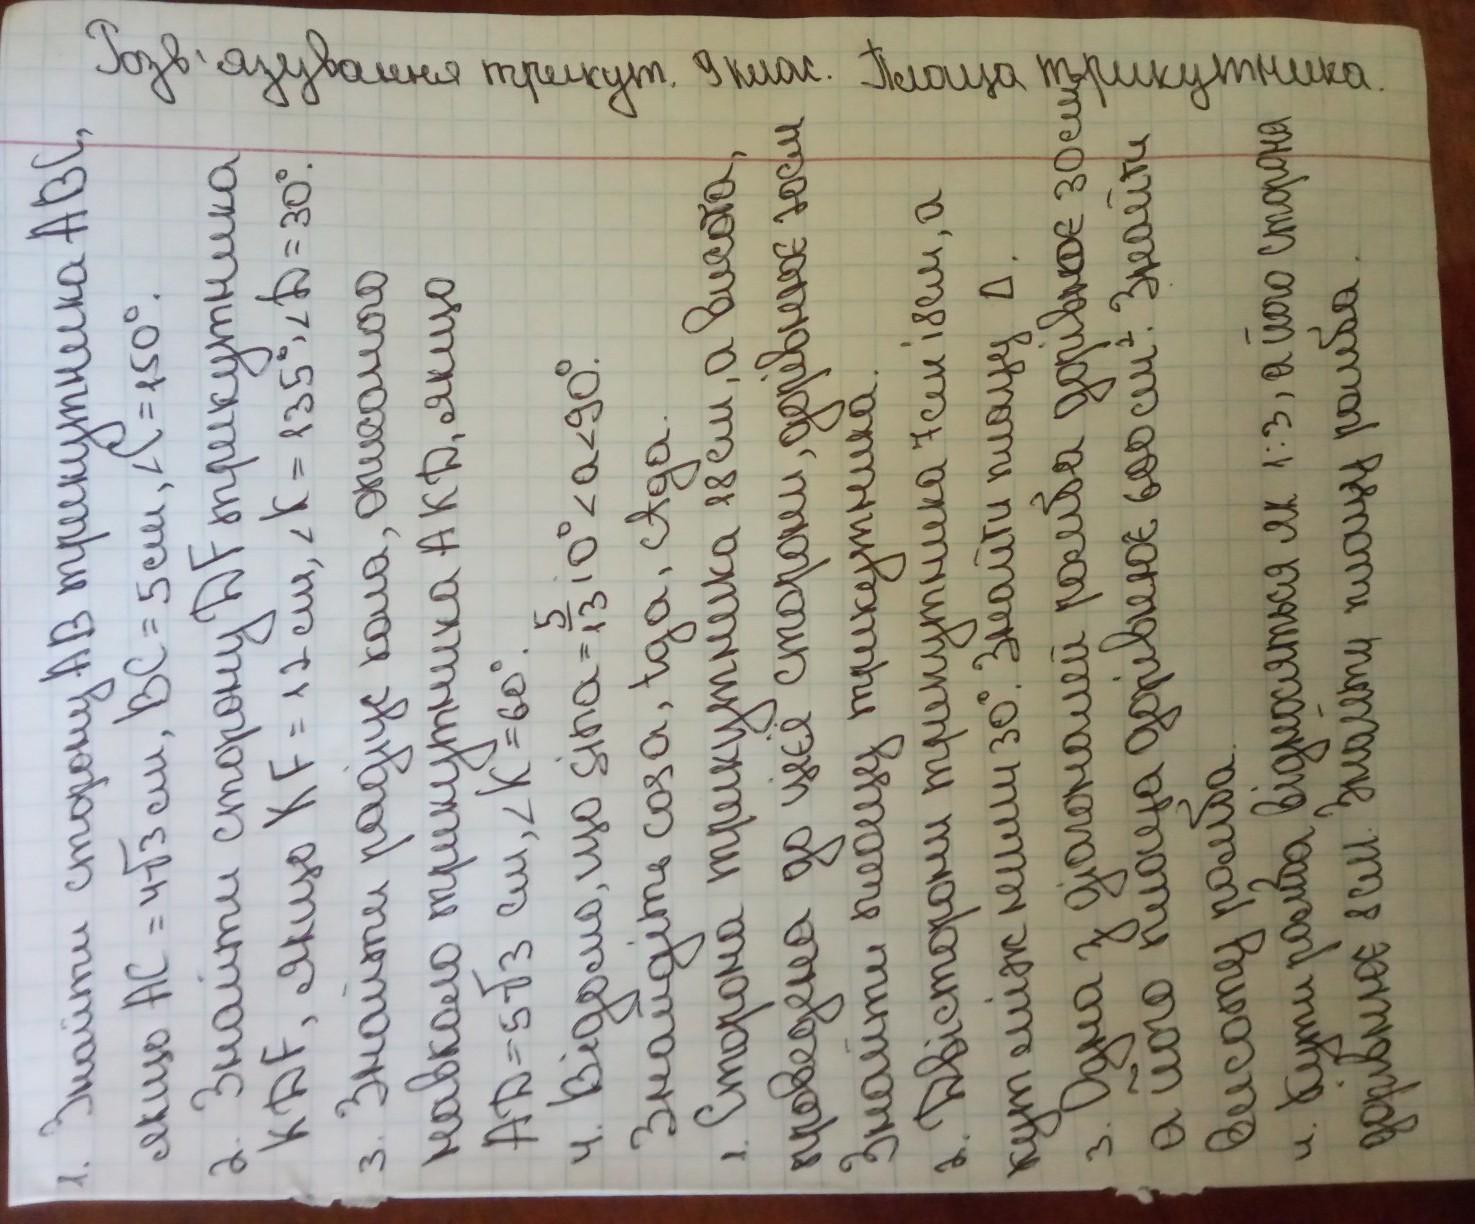 Розв'язування трикут. 9 клас. Площа трикутника.
1. Знайти сторону АВ трикутника АВС,
якщо АС = 4√3 см, ВС = 5 см, <С = 150°.
2. Знайти сторону DF трикутника
KDF, якщо KF = 12 см, <K = 135°, <D = 30°.
3. Знайти радіус кола, описаного
навколо трикутника AKD, якщо
AD = 5√3 см, <K = 60°.
4. Відомо, що sina = 5/13 і 0° < a < 90°.
Знайдіть cosa, tga, ctga.
1. Сторона трикутника 18 см, а висота,
проведена до цієї сторони, дорівнює 10см
Знайти площу трикутника.
2. Дві сторони трикутника 7 см і 8 см, а
кут між ними 30°. Знайти площу Δ.
3. Одна з діагоналей ромба дорівнює 30 см,
а його площа дорівнює 600 см². Знайти
висоту ромба.
4. Кути ромба відносяться як 1:3, а його сторона
дорівнює 8 см. Знайти площу ромба.